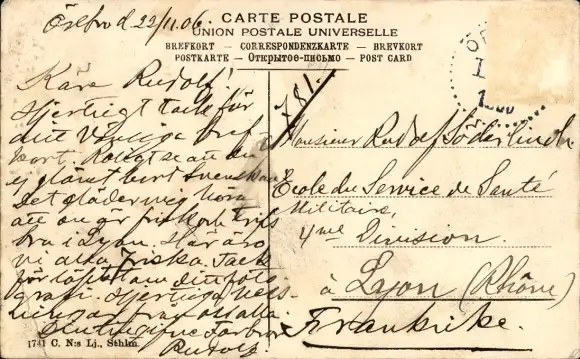 Örebro d 23/11.06.
CARTE POSTALE
UNION POSTALE UNIVERSELLE
BREFKORT — CORRESPONDENZKARTE — BREVKORT
POSTKARTE — Открытое-письмо — POST CARD
Käre Rudolf!
Hjertligt tack för
ditt vänliga bref
kort. Roligt se att du
ej glömt bort Svenskan
Det gläder mig höra
att du är frisk och trifs
bra i Lyon. Här äro
vi alla friska. Tack
för löftet om din foto
grafi. Hjertliga hels
ningar från oss alla.
Din tillgifne Farbror
Rudolf.
1741 C. N:s Lj., Sthlm.
781.
Monsieur Rudolf Söderlindh.
Ecole du Service de Santé
Militaire,
4me Division.
à Lyon (Rhône)
Frankrike.